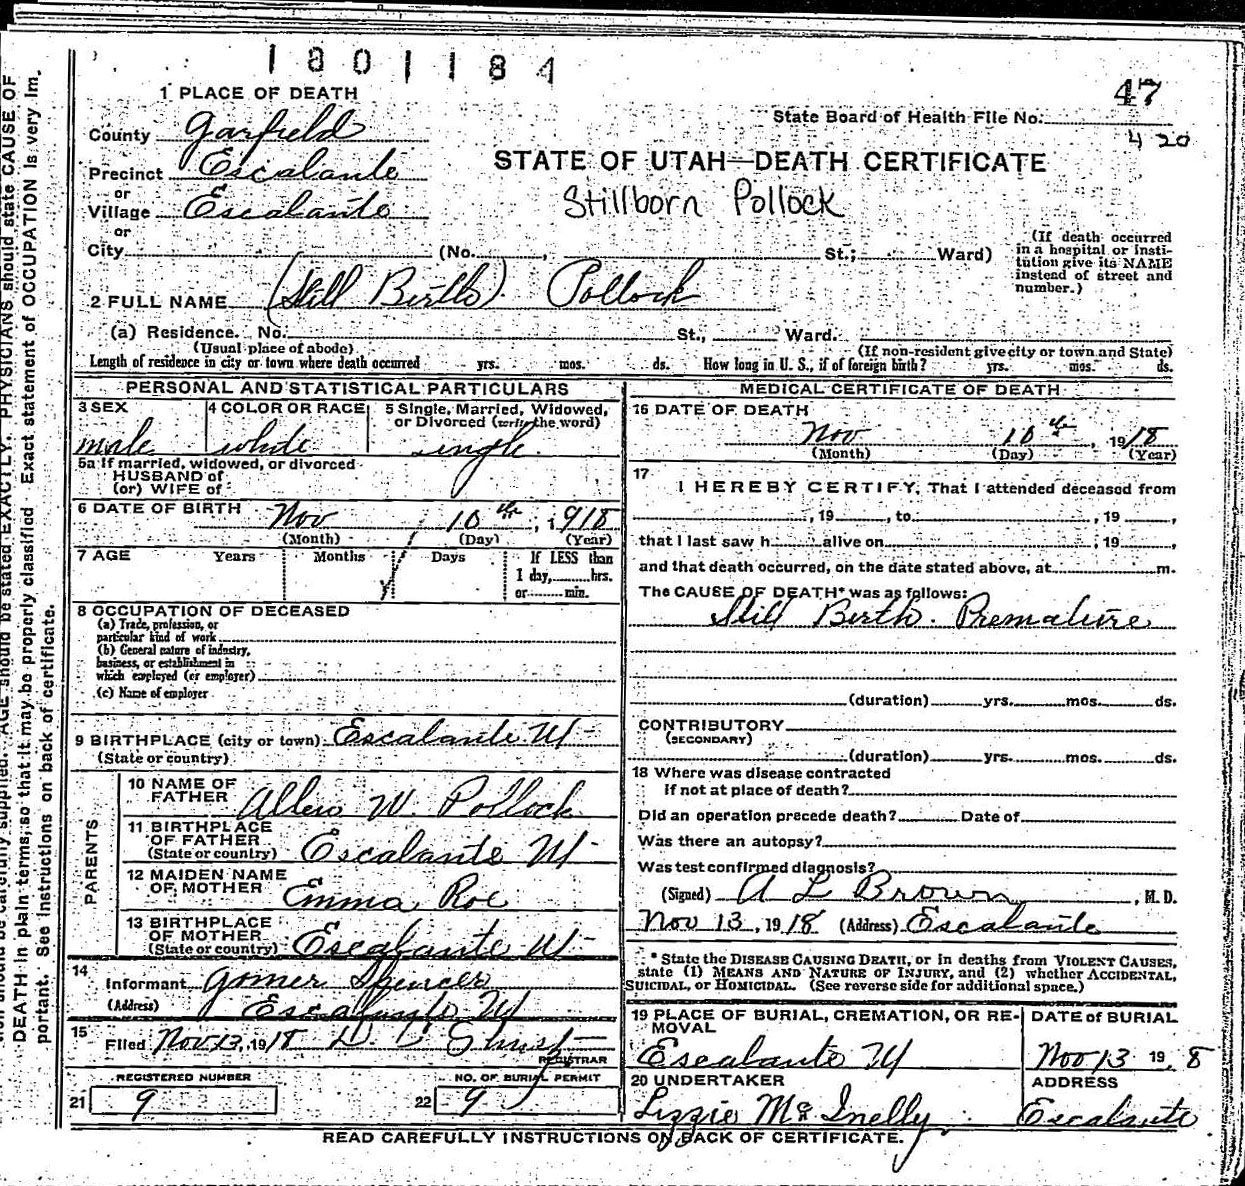 1801184
47
1 PLACE OF DEATH
State Board of Health File No.
4 20
County Garfield
STATE OF UTAH—DEATH CERTIFICATE
Precinct Escalante
or
Village Escalante
Stillborn Pollock
or
City (No. , St.; Ward)
(If death occurred in a hospital or institution give its NAME instead of street and number.)
2 FULL NAME (Still Birth) Pollock
(a) Residence. No. St., Ward.
(Usual place of abode) (If non-resident give city or town and State)
Length of residence in city or town where death occurred yrs. mos. ds. How long in U. S., if of foreign birth? yrs. mos. ds.
PERSONAL AND STATISTICAL PARTICULARS
3 SEX
male
4 COLOR OR RACE
white
5 Single, Married, Widowed, or Divorced (write the word)
single
5a If married, widowed, or divorced
HUSBAND of
(or) WIFE of
6 DATE OF BIRTH Nov 10th, 1918
(Month) (Day) (Year)
7 AGE Years Months Days If LESS than
1 day, hrs.
or min.
8 OCCUPATION OF DECEASED
(a) Trade, profession, or
particular kind of work
(b) General nature of industry,
business, or establishment in
which employed (or employer)
(c) Name of employer
9 BIRTHPLACE (city or town) Escalante Ut
(State or country)
PARENTS
10 NAME OF
FATHER Allen W. Pollock
11 BIRTHPLACE
OF FATHER
(State or country) Escalante Ut
12 MAIDEN NAME
OF MOTHER Emma Roe
13 BIRTHPLACE
OF MOTHER
(State or country) Escalante Ut
14
Informant Gomer Spencer
(Address) Escalante Ut
15
Filed Nov 13, 1918
REGISTRAR
REGISTERED NUMBER NO. OF BURIAL PERMIT
21 9 22 9
MEDICAL CERTIFICATE OF DEATH
16 DATE OF DEATH
Nov 10th, 1918
(Month) (Day) (Year)
17
I HEREBY CERTIFY, That I attended deceased from
, 19 , to , 19 ,
that I last saw h alive on , 19 ,
and that death occurred, on the date stated above, at m.
The CAUSE OF DEATH* was as follows:
Still Birth. Premature
(duration) yrs. mos. ds.
CONTRIBUTORY
(SECONDARY)
(duration) yrs. mos. ds.
18 Where was disease contracted
if not at place of death?
Did an operation precede death? Date of
Was there an autopsy?
Was test confirmed diagnosis?
(Signed) A L Brown, M. D.
Nov 13, 1918 (Address) Escalante
* State the DISEASE CAUSING DEATH, or in deaths from VIOLENT CAUSES,
state (1) MEANS AND NATURE OF INJURY, and (2) whether ACCIDENTAL,
SUICIDAL, or HOMICIDAL. (See reverse side for additional space.)
19 PLACE OF BURIAL, CREMATION, OR REMOVAL
Escalante Ut
DATE of BURIAL
Nov 13 19 8
20 UNDERTAKER
Lizzie McInelly
ADDRESS
Escalante
READ CAREFULLY INSTRUCTIONS ON BACK OF CERTIFICATE.
AGE should be stated EXACTLY. PHYSICIANS should state CAUSE OF
DEATH in plain terms, so that it may be properly classified. Exact statement of OCCUPATION is very im-
portant. See instructions on back of certificate.